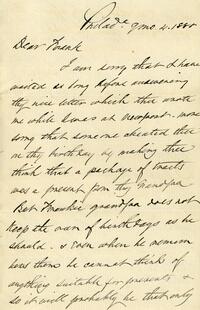 Philada 9mo. 4. 1885
Dear Frank
I am sorry that I have
waited so long before answering
thy nice letter which thee wrote
me while I was at Newport. more
sorry that someone cheated thee
on thy birthday by making thee
think that a package of tracts
was a present from thy Grandpa
But Frankie grandpa does not
keep the run of birthdays as he
should. & even when he remem
bers them he cannot think of
anything suitable for presents &
so it will probably be that only